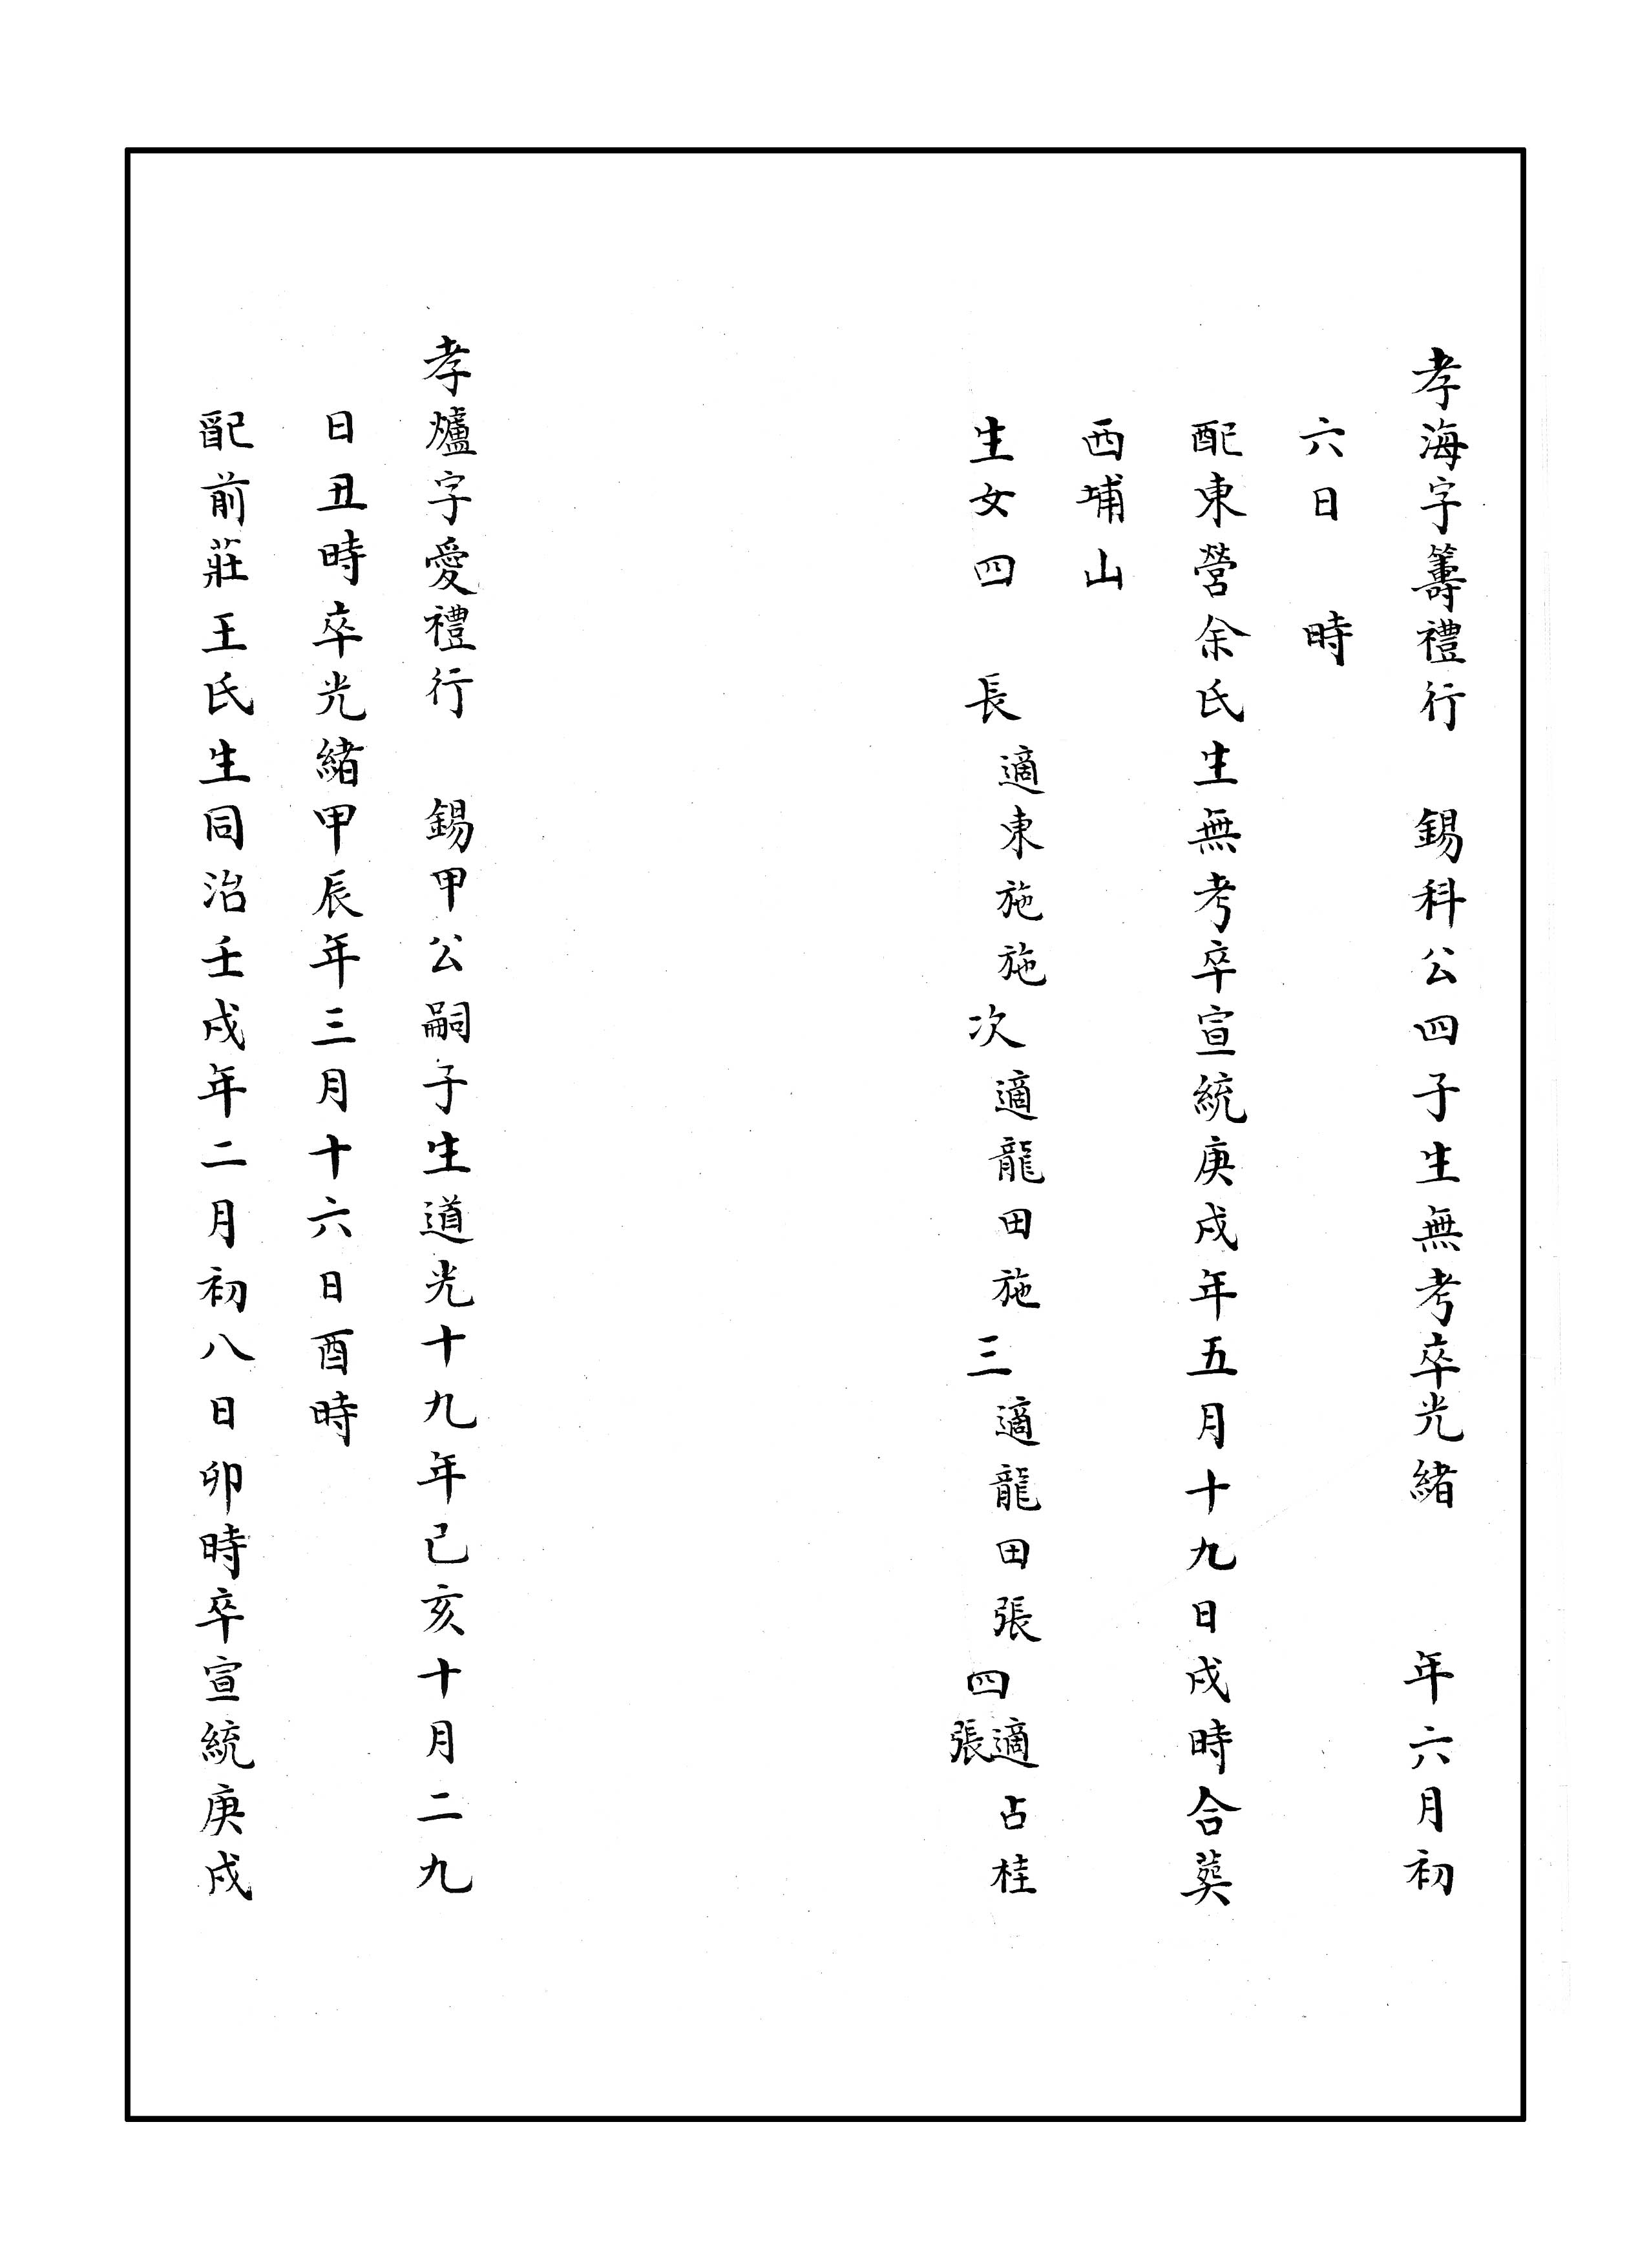 孝海字籌禮行　錫科公四子生無考卒光緒　　年六月初
六日　時
配東營余氏生無考卒宣統庚戌年五月十九日戌時合葬
西埔山
生女四　長適東施施次適龍田施三適龍田張四適占桂張
孝爐字愛禮行　錫甲公嗣子生道光十九年己亥十月二九
日丑時卒光緒甲辰年三月十六日酉時
配前莊王氏生同治壬戌年二月初八日卯時卒宣統庚戌